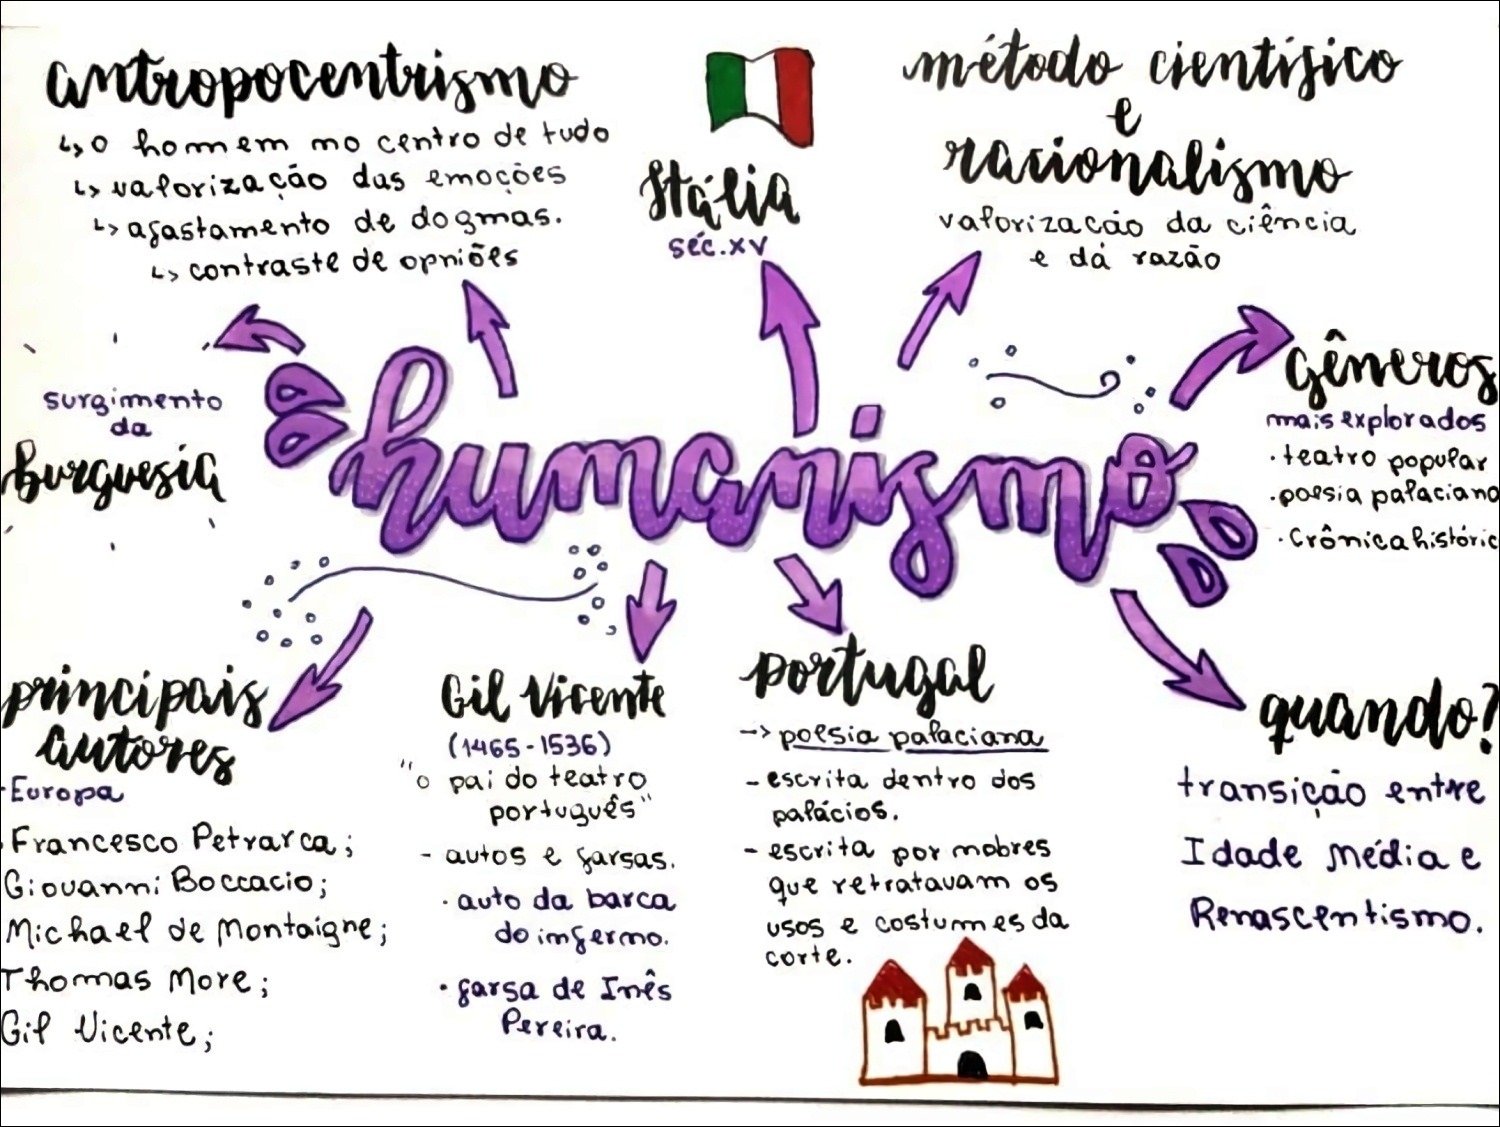 antropocentrismo
↳ o homem no centro de tudo
↳ valorização das emoções
↳ afastamento de dogmas.
↳ contraste de opniões
Itália
séc. XV
método científico
e
racionalismo
valorização da ciência
e dá razão
surgimento
da
burguesia
humanismo
gêneros
mais explorados
· teatro popular
· poesia palaciana
· Crônica históric
principais
autores
· Europa
· Francesco Petrarca;
Giovanni Boccacio;
Michael de Montaigne;
Thomas More;
Gil Vicente;
Gil Vicente
(1465-1536)
"o pai do teatro
português"
- autos e farsas.
· auto da barca
do infermo.
· farsa de Inês
Pereira.
portugal
-> poesia palaciana
- escrita dentro dos
palácios.
- escrita por nobres
que retratavam os
usos e costumes da
corte.
quando?
transição entre
Idade Média e
Renascentismo.